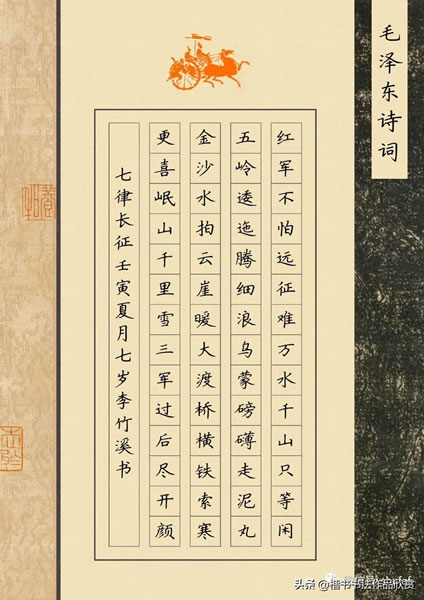 毛泽东诗词
红军不怕远征难万水千山只等闲
五岭逶迤腾细浪乌蒙磅礴走泥丸
金沙水拍云崖暖大渡桥横铁索寒
更喜岷山千里雪三军过后尽开颜
七律长征壬寅夏月七岁李竹溪书
头条@楷书书法作品欣赏